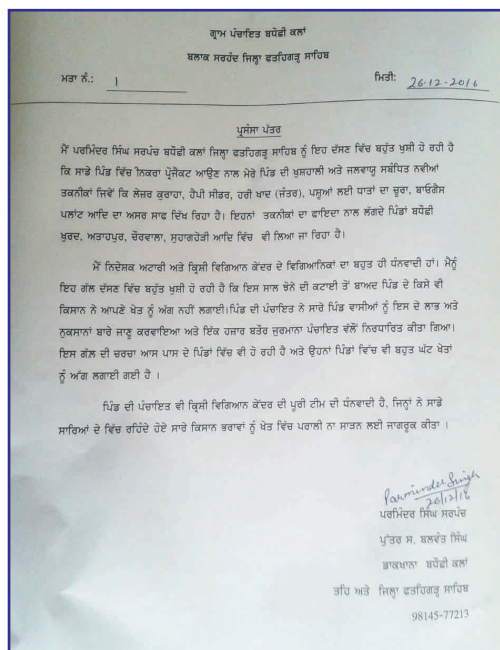 ਗ੍ਰਾਮ ਪੰਚਾਇਤ ਬਧੋਛੀ ਕਲਾਂ
ਬਲਾਕ ਸਰਹੰਦ ਜਿਲ੍ਹਾ ਫਤਹਿਗੜ੍ਹ ਸਾਹਿਬ
ਮਤਾ ਨੰ.: 1 ਮਿਤੀ: 26-12-2016
ਪ੍ਰਸੰਸਾ ਪੱਤਰ
ਮੈਂ ਪਰਮਿੰਦਰ ਸਿੰਘ ਸਰਪੰਚ ਬਧੋਛੀ ਕਲਾਂ ਜਿਲ੍ਹਾ ਫਤਹਿਗੜ੍ਹ ਸਾਹਿਬ ਨੂੰ ਇਹ ਦੱਸਣ ਵਿੱਚ ਬਹੁੱਤ ਖੁਸ਼ੀ ਹੋ ਰਹੀ ਹੈ
ਕਿ ਸਾਡੇ ਪਿੰਡ ਵਿੱਚ ਨਿਕਰਾ ਪ੍ਰੋਜੈਕਟ ਆਉਣ ਨਾਲ ਮੇਰੇ ਪਿੰਡ ਦੀ ਖੁਸ਼ਹਾਲੀ ਅਤੇ ਜਲਵਾਯੂ ਸਬੰਧਿਤ ਨਵੀਂਆਂ
ਤਕਨੀਕਾਂ ਜਿਵੇਂ ਕਿ ਲੇਜ਼ਰ ਕੁਰਾਹਾ, ਹੈਪੀ ਸੀਡਰ, ਹਰੀ ਖਾਦ (ਜੰਤਰ), ਪਸ਼ੂਆਂ ਲਈ ਧਾਤਾਂ ਦਾ ਚੂਰਾ, ਬਾਓਗੈਸ
ਪਲਾਂਟ ਆਦਿ ਦਾ ਅਸਰ ਸਾਫ ਦਿੱਖ ਰਿਹਾ ਹੈ। ਇਹਨਾਂ ਤਕਨੀਕਾਂ ਦਾ ਫਾਇਦਾ ਨਾਲ ਲੱਗਦੇ ਪਿੰਡਾਂ ਬਧੋਛੀ
ਖੁਰਦ, ਅਤਾਹਪੁਰ, ਚੌਰਵਾਲਾ, ਸੁਹਾਗਹੇੜੀ ਆਦਿ ਵਿੱਚ ਵੀ ਲਿਆ ਜਾ ਰਿਹਾ ਹੈ।
ਮੈਂ ਨਿਦੇਸ਼ਕ ਅਟਾਰੀ ਅਤੇ ਕ੍ਰਿਸ਼ੀ ਵਿਗਿਆਨ ਕੇਂਦਰ ਦੇ ਵਿਗਿਆਨਿਕਾਂ ਦਾ ਬਹੁਤ ਹੀ ਧੰਨਵਾਦੀ ਹਾਂ। ਮੈਨੂੰ
ਇਹ ਗੱਲ ਦੱਸਣ ਵਿੱਚ ਬਹੁੱਤ ਖੁਸ਼ੀ ਹੋ ਰਹੀ ਹੈ ਕਿ ਇਸ ਸਾਲ ਝੋਨੇ ਦੀ ਕਟਾਈ ਤੋਂ ਬਾਅਦ ਪਿੰਡ ਦੇ ਕਿਸੇ ਵੀ
ਕਿਸਾਨ ਨੇ ਆਪਣੇ ਖੇਤ ਨੂੰ ਅੱਗ ਨਹੀਂ ਲਗਾਈ।ਪਿੰਡ ਦੀ ਪੰਚਾਇਤ ਨੇ ਸਾਰੇ ਪਿੰਡ ਵਾਸੀਆਂ ਨੂੰ ਇਸ ਦੇ ਲਾਭ ਅਤੇ
ਨੁਕਸਾਨਾਂ ਬਾਰੇ ਜਾਣੂ ਕਰਵਾਇਆ ਅਤੇ ਇੱਕ ਹਜ਼ਾਰ ਬਤੌਰ ਜੁਰਮਾਨਾ ਪੰਚਾਇਤ ਵੱਲੋਂ ਨਿਰਧਾਰਿਤ ਕੀਤਾ ਗਿਆ।
ਇਸ ਗੱਲ ਦੀ ਚਰਚਾ ਆਸ ਪਾਸ ਦੇ ਪਿੰਡਾਂ ਵਿੱਚ ਵੀ ਹੋ ਰਹੀ ਹੈ ਅਤੇ ਉਹਨਾਂ ਪਿੰਡਾਂ ਵਿੱਚ ਵੀ ਬਹੁਤ ਘੱਟ ਖੇਤਾਂ
ਨੂੰ ਅੱਗ ਲਗਾਈ ਗਈ ਹੈ ।
ਪਿੰਡ ਦੀ ਪੰਚਾਇਤ ਵੀ ਕ੍ਰਿਸ਼ੀ ਵਿਗਿਆਨ ਕੇਂਦਰ ਦੀ ਪੂਰੀ ਟੀਮ ਦੀ ਧੰਨਵਾਦੀ ਹੈ, ਜਿਨ੍ਹਾਂ ਨੇ ਸਾਡੇ
ਸਾਰਿਆਂ ਦੇ ਵਿੱਚ ਰਹਿੰਦੇ ਹੋਏ ਸਾਰੇ ਕਿਸਾਨ ਭਰਾਵਾਂ ਨੂੰ ਖੇਤ ਵਿੱਚ ਪਰਾਲੀ ਨਾ ਸਾੜਨ ਲਈ ਜਾਗਰੂਕ ਕੀਤਾ ।
Parminder Singh
26/12/16
ਪਰਮਿੰਦਰ ਸਿੰਘ ਸਰਪੰਚ
ਪੁੱਤਰ ਸ. ਬਲਵੰਤ ਸਿੰਘ
ਡਾਕਖਾਨਾ ਬਧੋਛੀ ਕਲਾਂ
ਤਹਿ ਅਤੇ ਜਿਲ੍ਹਾ ਫਤਹਿਗੜ੍ਹ ਸਾਹਿਬ
98145-77213